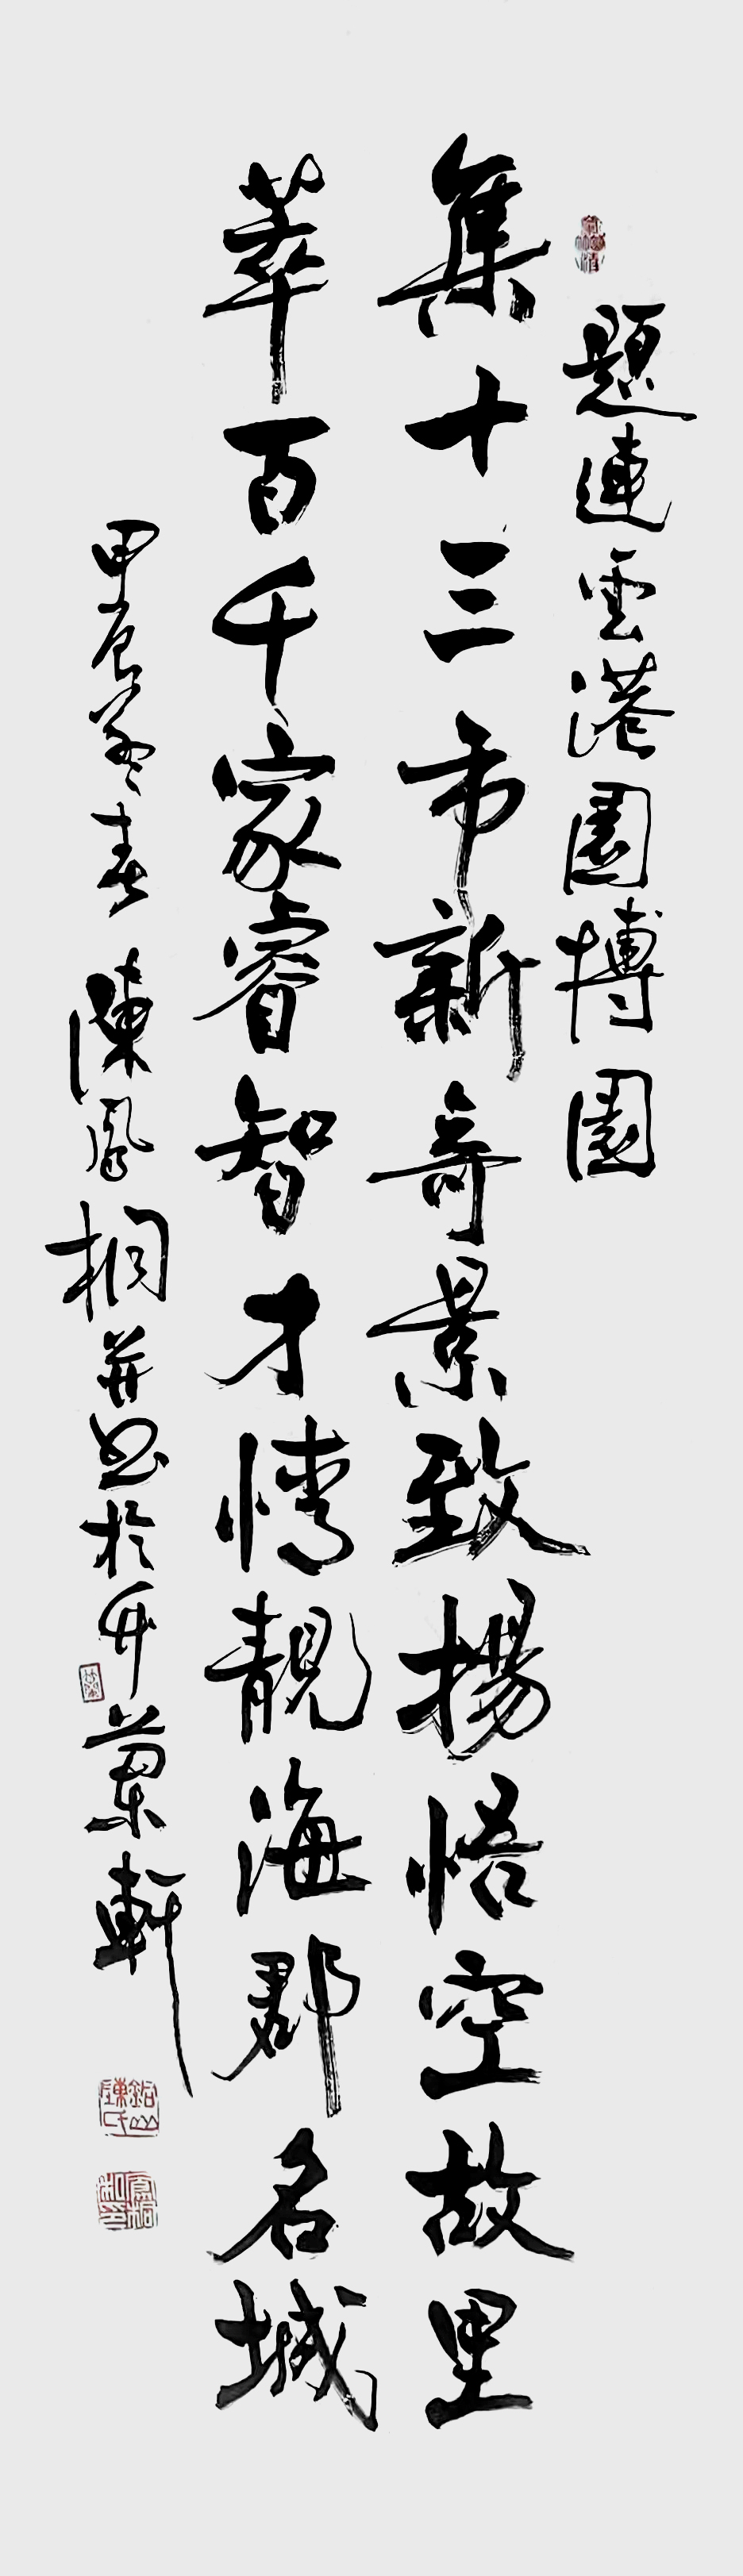 題連雲港園博園
集十三市新奇景致揚悟空故里
萃百千家睿智才情靚海郡名城
甲辰孟春陳鳳桐並書於竹蘭軒